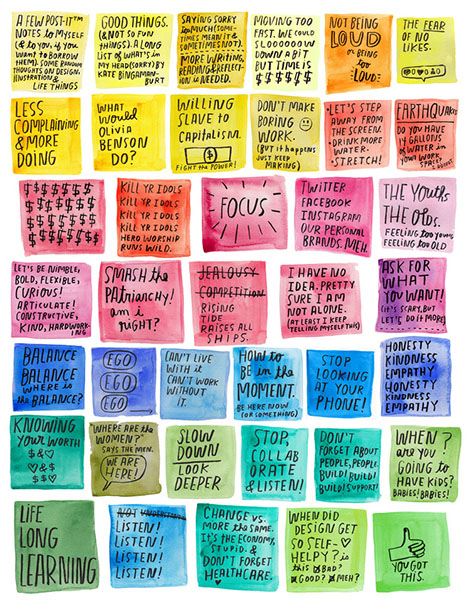 A FEW POST-IT™
NOTES to MYSELF
(& to you, if you
WANT to BORROW
THEM). SOME RANDOM
THOUGHTS ON DESIGN,
ILLUSTRATION &
LIFE THINGS
GOOD THINGS.
(& NOT SO FUN
THINGS). A LONG
LIST OF WHAT'S IN
MY HEAD (SORRY) BY
KATE BINGAMAN-
BURT
SAYING SORRY
to MUCH (SOME-
TIMES MEAN IT &
SOMETIMES NOT).
MORE WRITING,
READING & REFLEC-
TION is NEEDED.
MOVING TOO
FAST. WE COULD
SLOOOOOOW
DOWN A BIT
BUT TIME IS
$$$$$$
NOT BEING
LOUD
or BEING
too
LOUD:
THE FEAR
OF NO
LIKES.
LESS
COMPLAINING
& MORE
DOING
WHAT
WOULD
OLIVIA
BENSON
DO?
WILLING
SLAVE to
CAPITALISM.
$
FIGHT the POWER!
DON'T MAKE
BORING
WORK.
(BUT it HAPPENS
JUST KEEP
MAKING)
•LET'S STEP
AWAY FROM
THE SCREEN.
•DRINK MORE
WATER.
•STRETCH!
EARTHQUAKE
DO YOU HAVE
14 GALLONS
of WATER in
YOUR WORK
SPACE?
$$$$$$
$$$$$$
$$$$$$
$$$$$$
KILL YR IDOLS
KILL YR IDOLS
KILL YR IDOLS
KILL YR IDOLS
HERO WORSHIP
RUNS WILD.
FOCUS
TWITTER
FACEBOOK
INSTAGRAM
OUR PERSONAL
BRANDS. MEH.
THE YOUTHS
THE OLDS.
FEELING TOO YOUNG
FEELING TOO OLD
LET'S BE NIMBLE,
BOLD, FLEXIBLE,
CURIOUS!
ARTICULATE!
CONSTRUCTIVE,
KIND, HARDWORK-
ING
SMASH the
PATRIARCHY!
am i
RIGHT?
JEALOUSY
COMPETITION
RISING
TIDE
RAISES ALL
SHIPS.
I HAVE NO
IDEA. PRETTY
SURE I AM
NOT ALONE.
(AT LEAST I KEEP
TELLING MYSELF THIS)
ASK FOR
WHAT
YOU WANT!
(IT'S SCARY, BUT
LET'S DO IT MORE)
BALANCE
BALANCE
WHERE is
the BALANCE?
EGO
EGO
EGO
CAN'T LIVE
WITH it
CAN'T WORK
WITHOUT
IT.
HOW to
BE in the
MOMENT.
(BE HERE NOW
FOR SOMETHING)
STOP
LOOKING
AT YOUR
PHONE!
HONESTY
KINDNESS
EMPATHY
HONESTY
KINDNESS
EMPATHY
KNOWING
your WORTH
$&♡
♡&$
$$♡
"WHERE ARE the
WOMEN?"
SAYS THE MEN.
WE ARE
HERE!
SLOW
DOWN
LOOK
DEEPER
STOP,
COLLAB
ORATE
& LISTEN!
DON'T
FORGET ABOUT
PEOPLE, PEOPLE.
BUILD! BUILD!
BUILD! SUPPORT!
WHEN?
are YOU
GOING to
HAVE KIDS?
BABIES! BABIES!
LIFE
LONG
LEARNING
NOT
LISTEN!
LISTEN!
LISTEN!
LISTEN!
CHANGE VS.
MORE the SAME.
IT'S the ECONOMY,
STUPID. &
DON'T FORGET
HEALTHCARE.
WHEN DID
DESIGN GET
SO SELF-
HELPY? is
this BAD?
GOOD? MEH?
YOU GOT
THIS.